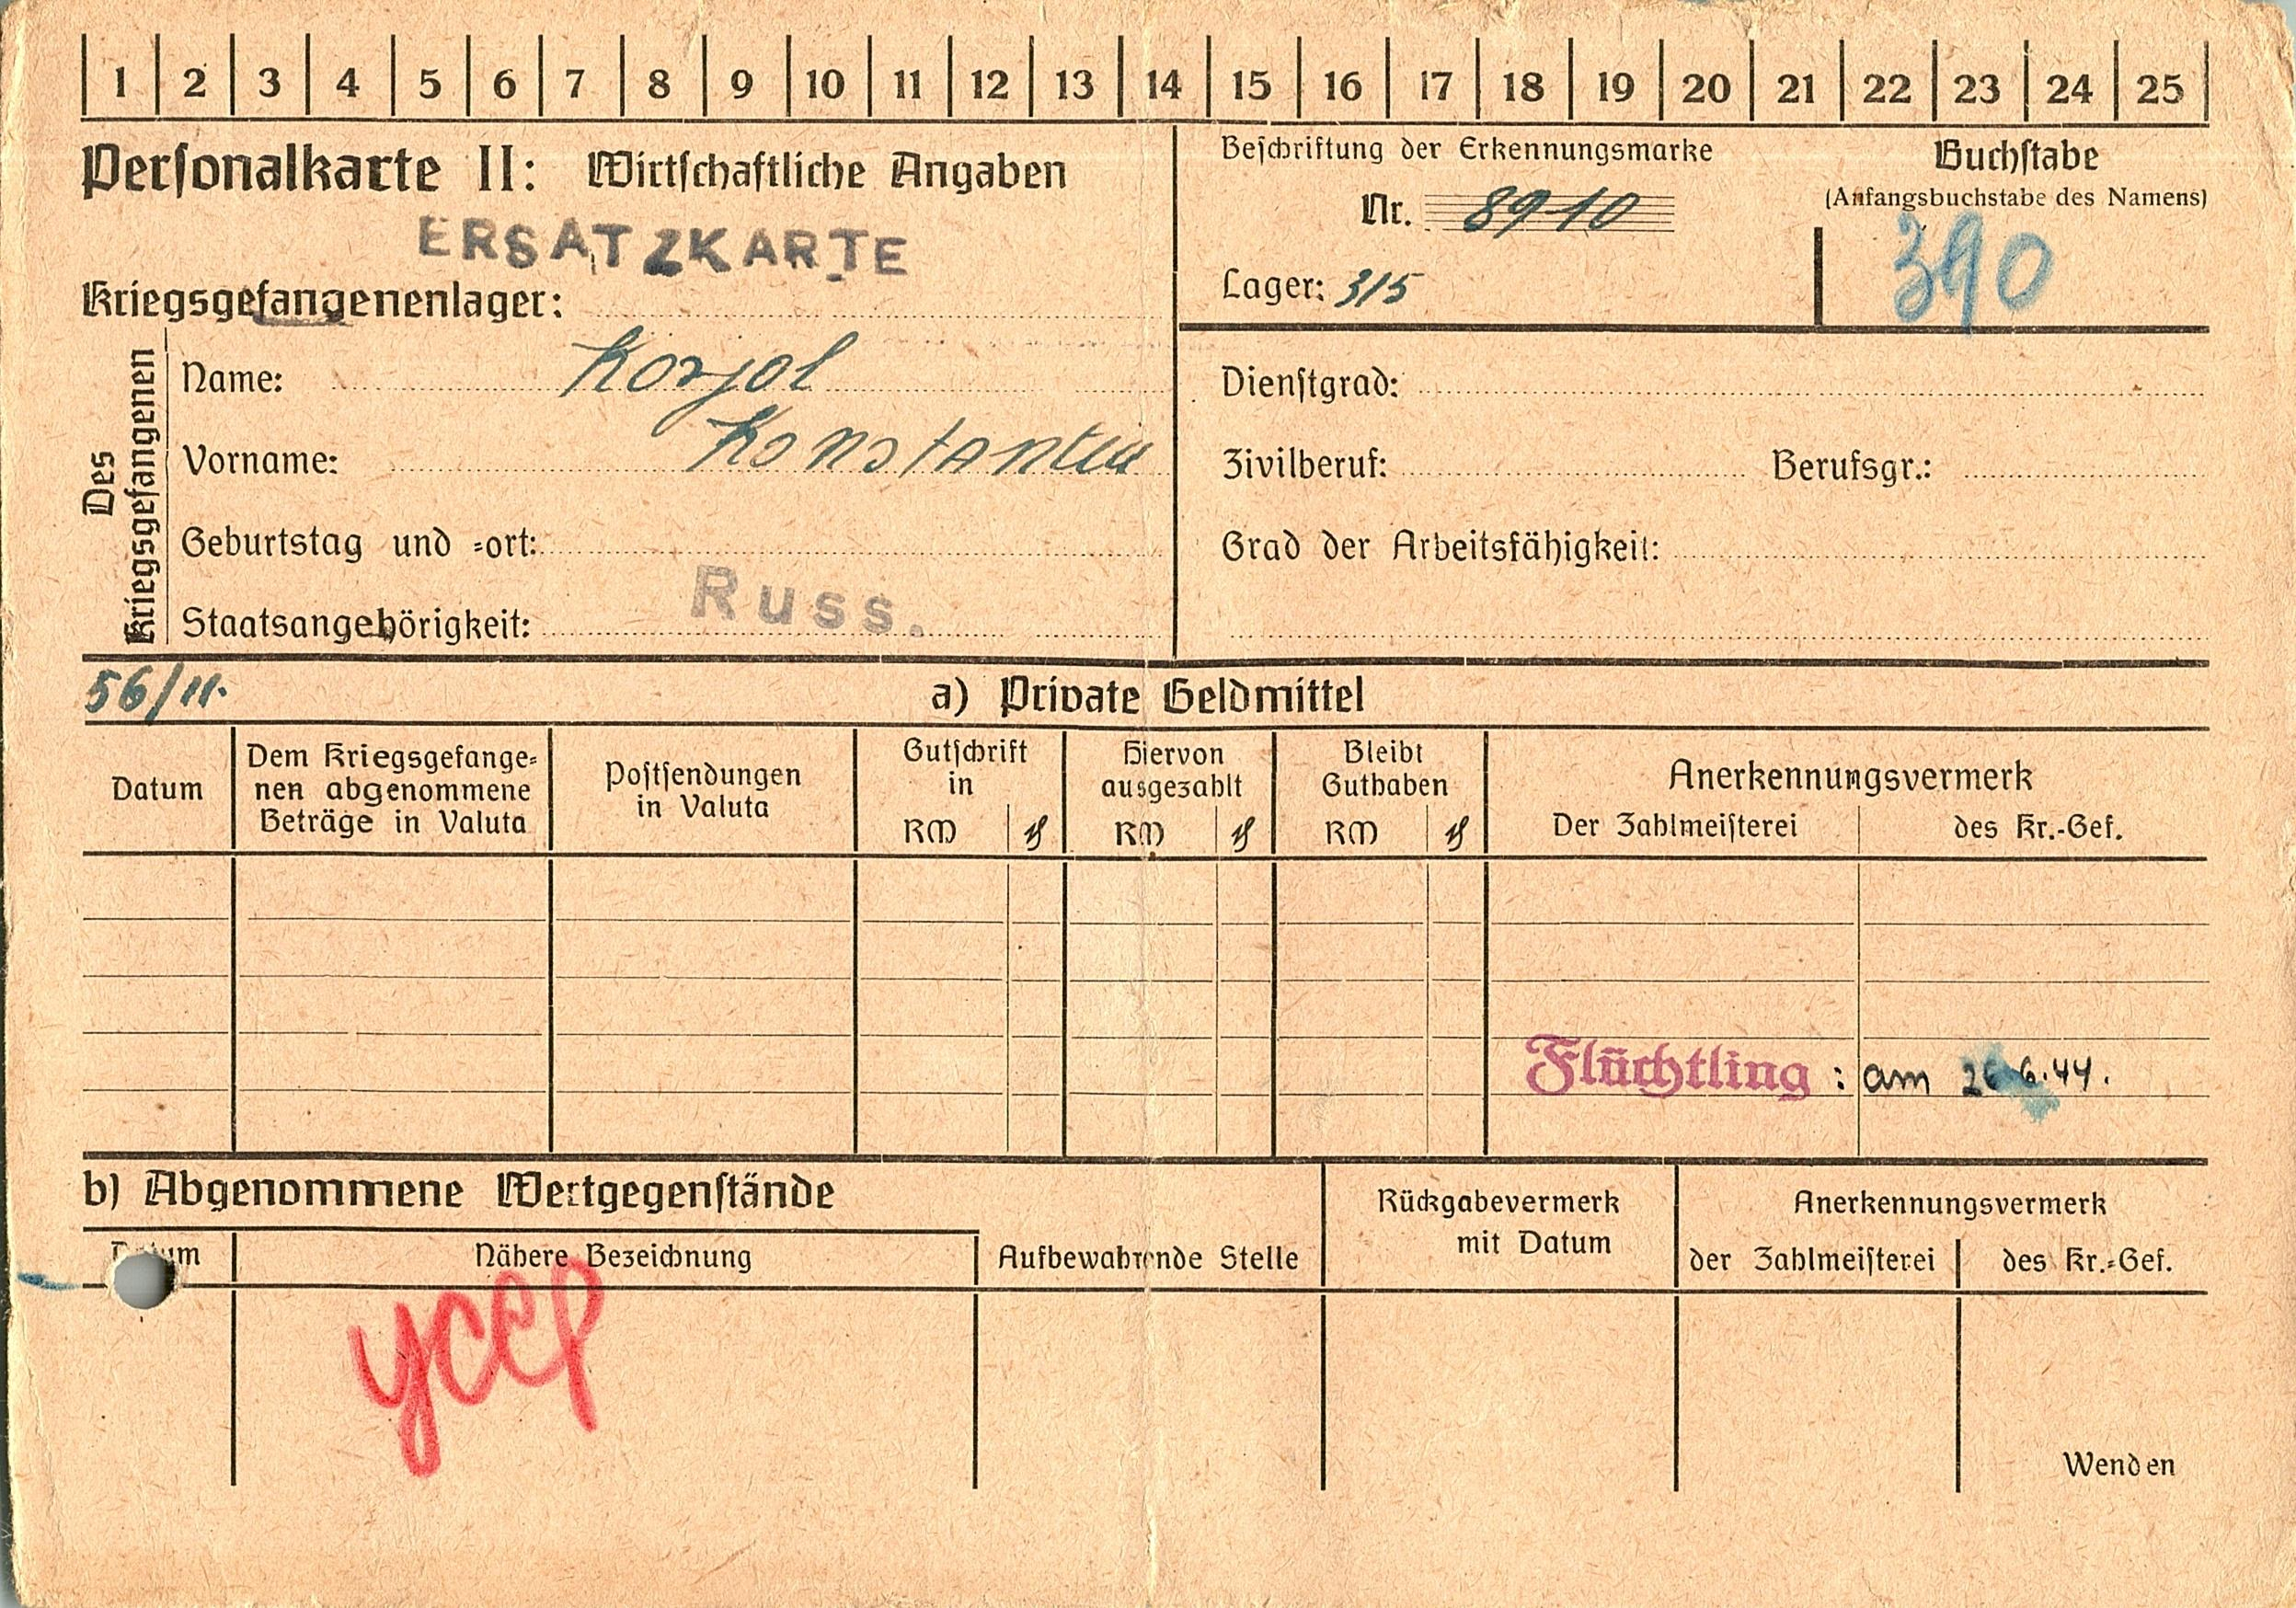 1 2 3 4 5 6 7 8 9 10 11 12 13 14 15 16 17 18 19 20 21 22 23 24 25
Personalkarte II: Wirtschaftliche Angaben
ERSATZKARTE
Kriegsgefangenenlager:
Des Kriegsgefangenen
Name: Korjol
Vorname: Konstantin
Geburtstag und =ort:
Staatsangehörigkeit: Russ.
Beschriftung der Erkennungsmarke
Nr. 8910
Lager: 315
Buchstabe
(Anfangsbuchstabe des Namens)
390
Dienstgrad:
Zivilberuf: Berufsgr.:
Grad der Arbeitsfähigkeit:
56/11.
a) Private Geldmittel
Datum
Dem Kriegsgefange=
nen abgenommene
Beträge in Valuta
Postsendungen
in Valuta
Gutschrift
in
RM ₰
Hiervon
ausgezahlt
RM ₰
Bleibt
Guthaben
RM ₰
Anerkennungsvermerk
Der Zahlmeisterei des Kr.-Gef.
Flüchtling : am 26.6.44.
b) Abgenommene Wertgegenstände
Datum
Nähere Bezeichnung
Aufbewahrende Stelle
Rückgabevermerk
mit Datum
Anerkennungsvermerk
der Zahlmeisterei des Kr.=Gef.
усср
Wenden